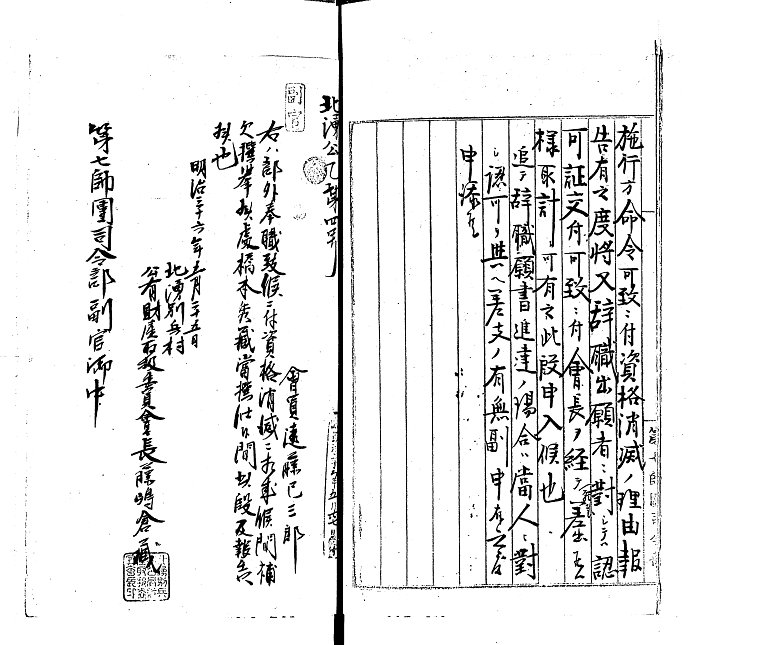 施行方命令可致ニ付資格消滅ノ理由報
告有之度将又辞職出願者ニ對シテハ認
可証交付可致ニ付會長ヲ経テ差出
様取計可有之此段申入候也
追テ辞職願書進達ノ場合ハ當人ニ對
シ認可ヲ與ヘ差支ノ有無副申
申添
北湧公乙第四号
副官
會員遠藤巳三郎
右ハ部外奉職致候ニ付資格消滅ニ候間補
欠撰挙處橋本當撰候間此段及報告
候也
明治三十六年五月二十五日
北湧別兵村
公有財産取扱委員會長藤嶋倉藏
第七師團司令部副官御中